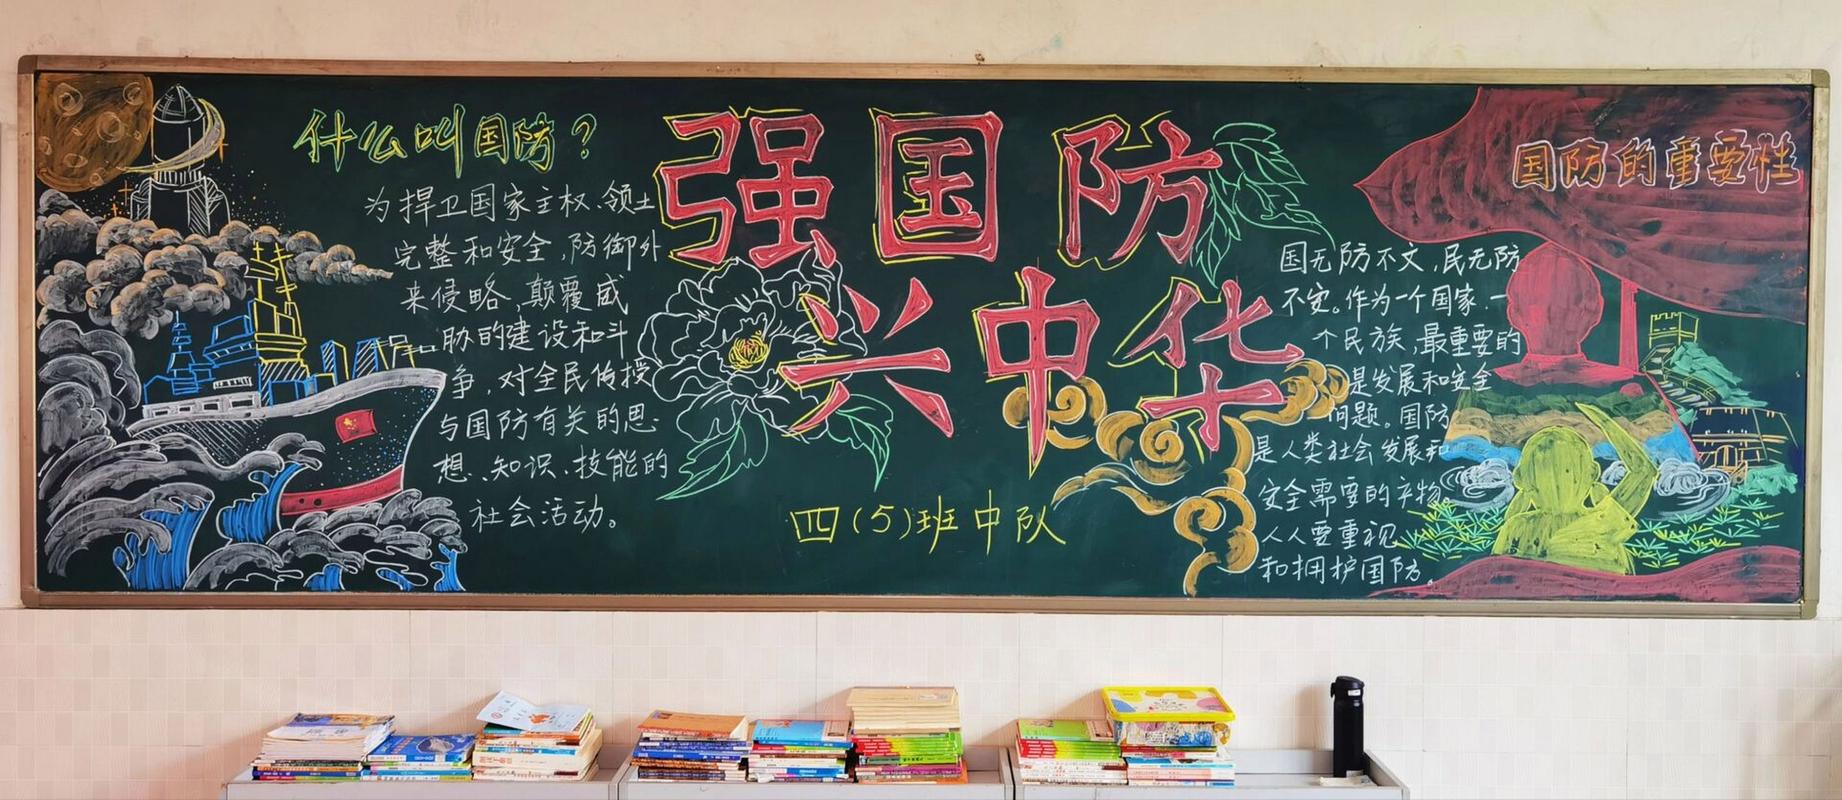 什么叫国防?
为捍卫国家主权、领土
完整和安全,防御外
来侵略、颠覆威
胁的建设和斗
争,对全民传授
与国防有关的思
想、知识、技能的
社会活动。
强国防
兴中华
四(5)班中队
国防的重要性
国无防不文,民无防
不安。作为一个国家.一
个民族,最重要的
是发展和安全
问题。国防
是人类社会发展和
安全需要的产物。
人人要重视
和拥护国防。